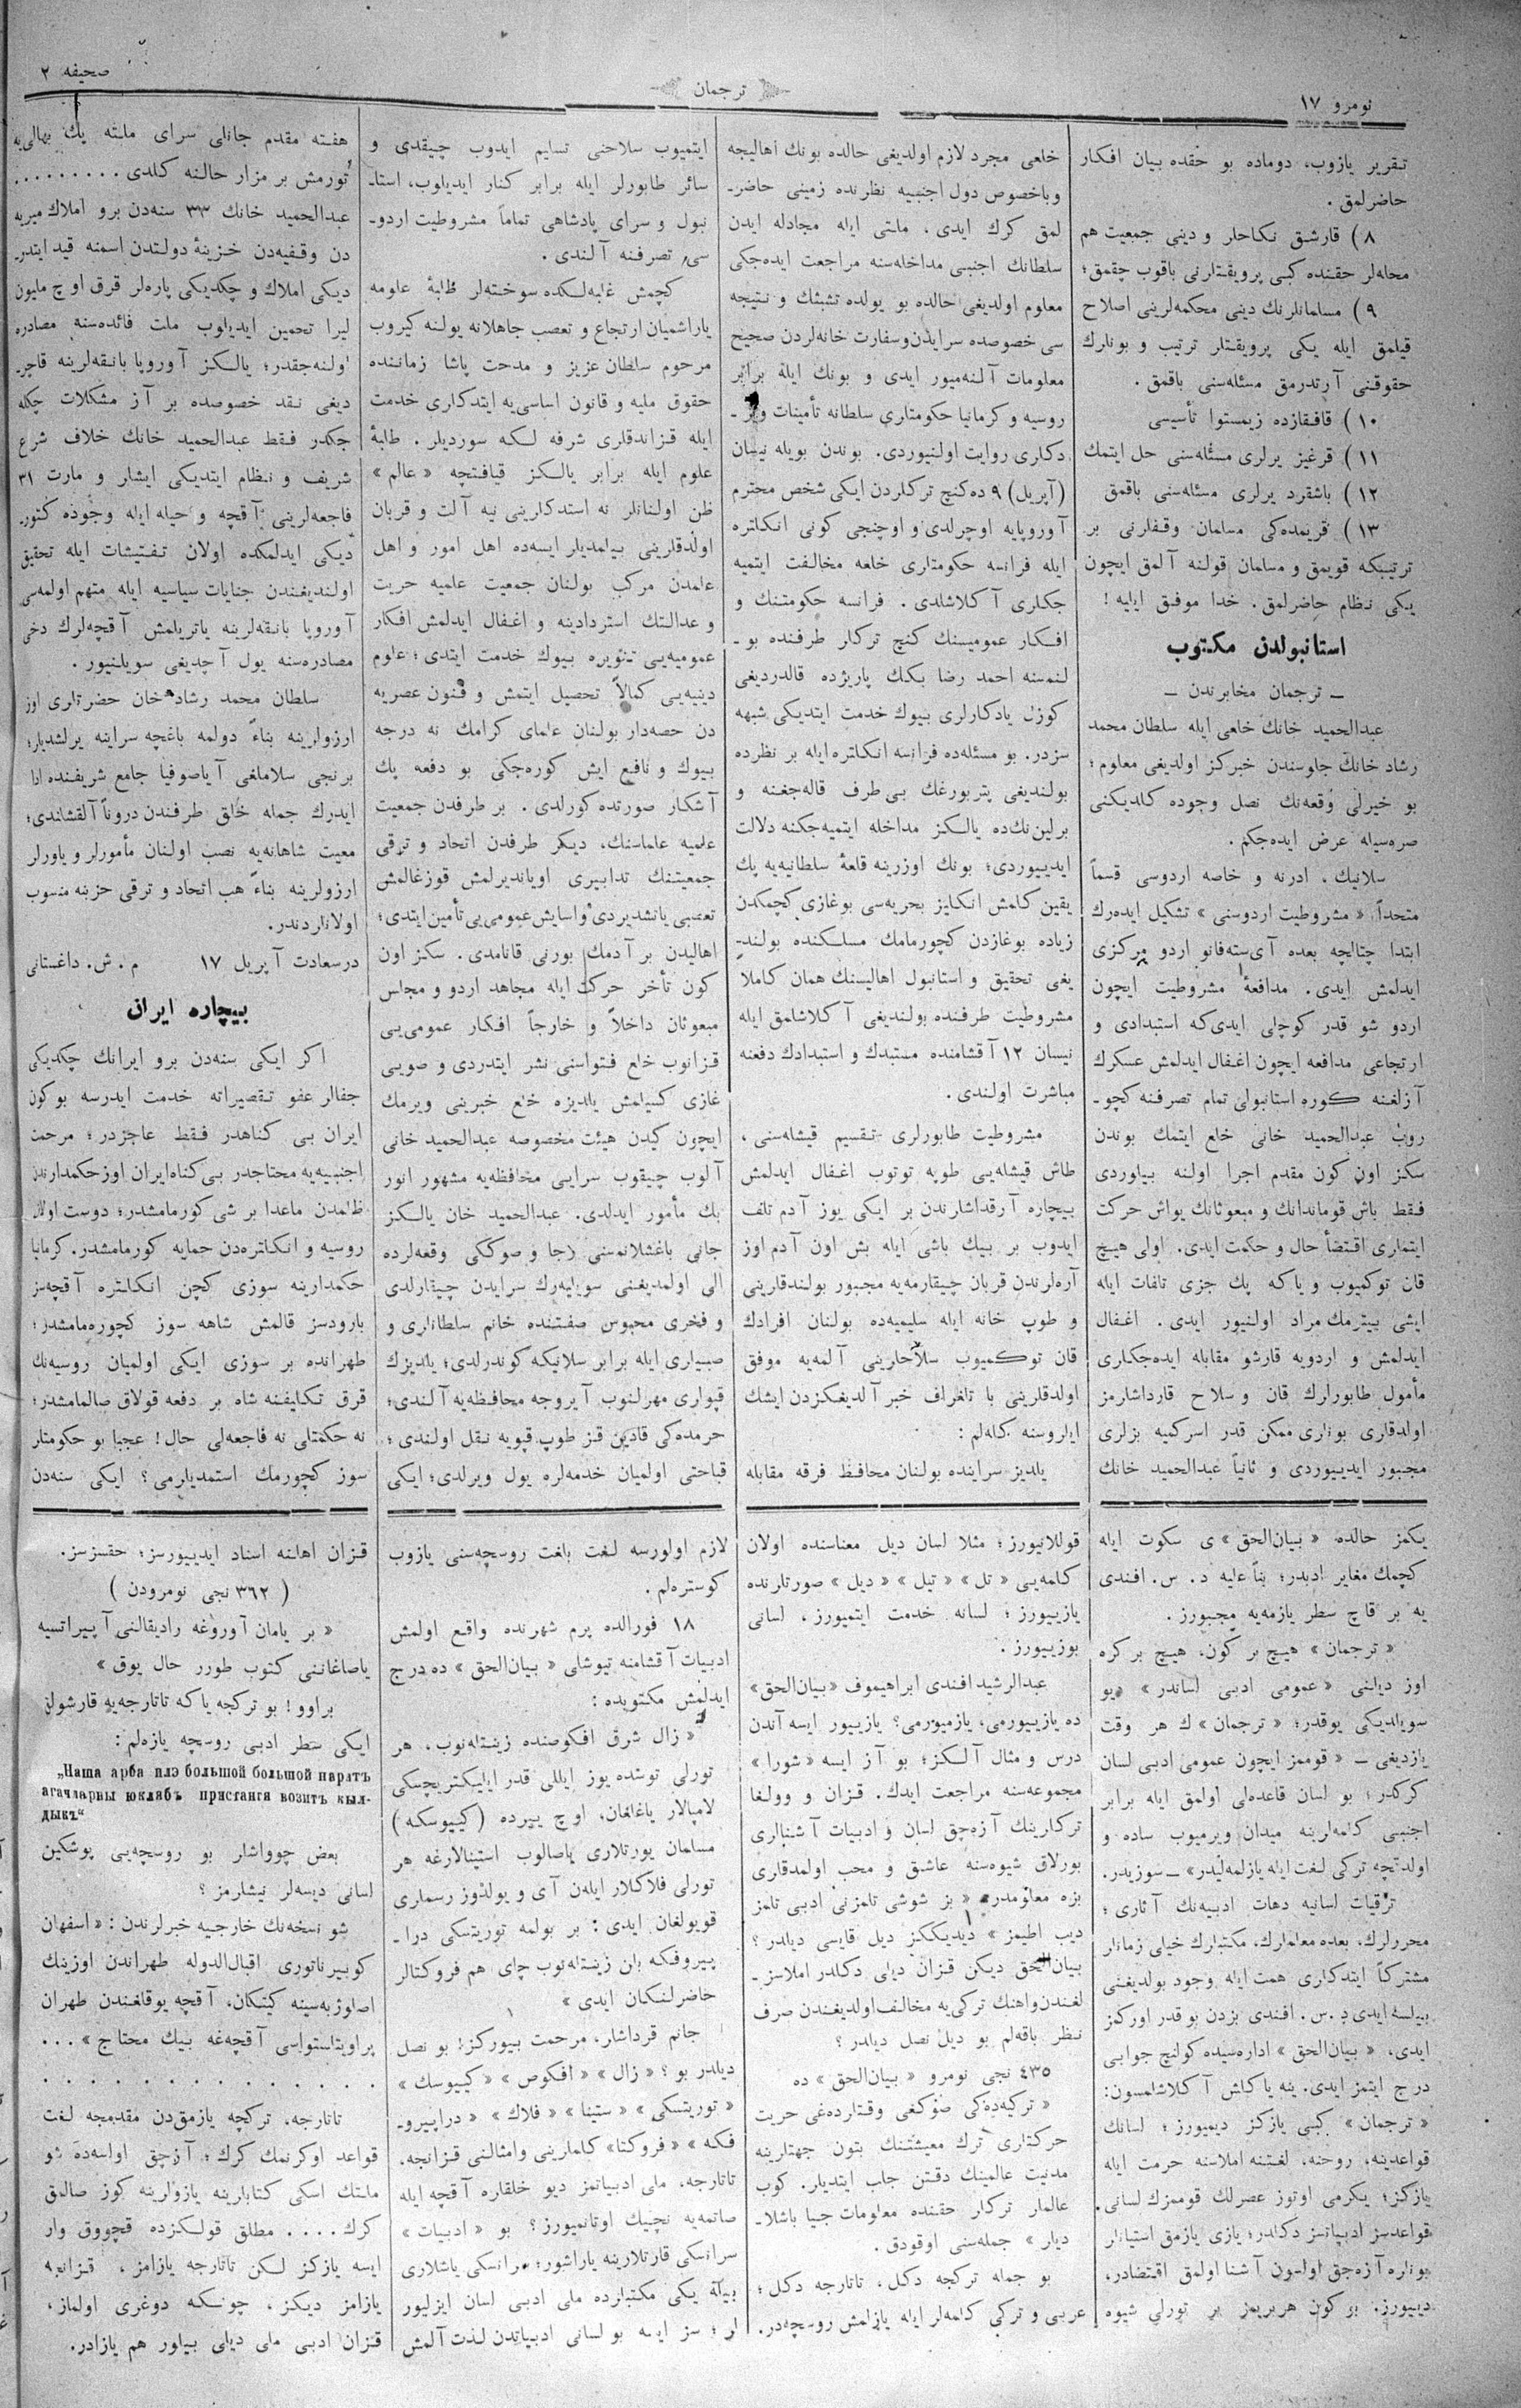 نومرو ١٧
ترجمان
صحیفه ٢
تقریر یازوب، دوماده بو حقده بیان افكار
حاضرلمق .
٨) قارشق نكاحلر و دینی جمعیت هم
محله‌لر حقنده كبی پرویقتلرنی باقوب چقمق ؛
٩) مسلمانلرنك دینی محكمه‌لرینی اصلاح
قیلمق ایله یكی پرویقتلر ترتیب و بونلرك
حقوقنی آرتدرمق مسئله‌سنی باقمق .
١٠) قافقازده زیمستوا تأسیسی
١١) قرغیز یرلری مسئله‌سنی حل ایتمك
١٢) باشقرد یرلری مسئله‌سنی باقمق
١٣) قریمده‌كی مسلمان وقفلرنی بر
ترتیبكه قویمق و مسلمان قولنه آلمق ایچون
یكی نظام حاضرلمق . خدا موفق ایلیه !
استانبولدن مكتوب
ـ ترجمان مخابرندن ـ
عبدالحمید خانك خلعی ایله سلطان محمد
رشاد خانك جلوسندن خبركز اولدیغی معلوم ؛
بو خیرلی وقعه‌نك نصل وجوده كلدیكنی
صره‌سیله عرض ایده‌جكم .
سلانیك ، ادرنه و خاصه اردوسی قسماً
متحداً، « مشروطیت اردوسنی » تشكیل ایده‌رك
ابتدا چتالجه بعده آی‌سته‌فانو اردو مركزی
ایدلمش ایدی. مدافعهٔ مشروطیت ایچون
اردو شو قدر كوچلی ایدی‌كه استبدادی و
ارتجاعی مدافعه ایچون اغفال ایدلمش عسكرك
آزلغنه كوره استانبولی تمام تصرفنه كچو ـ
روب عبدالحمید خانی خلع ایتمك بوندن
سكز اون كون مقدم اجرا اولنه بیلوردی
فقط باش قوماندانك و مبعوثانك یواش حركت
ایتملری اقتضأ حال و حكمت ایدی. اولی هیچ
قان توكمیوب و یاكه پك جزی تلفات ایله
ایشی بیترمك مراد اولنیور ایدی . اغفال
ایدلمش و اردویه قارشو مقابله ایده‌جكلری
مأمول طابورلرك قان و سلاح قارداشلرمز
اولدقلری بونلری ممكن قدر اسركمیه بزلری
مجبور ایدییوردی و ثانیاً عبدالحمید خانك
خلعی مجرد لازم اولدیغی حالده بونك اهالیجه
وباخصوص دول اجنبیه نظرنده زمینی حاضرـ
لمق كرك ایدی ، ملتی ایله مجادله ایدن
سلطانك اجنبی مداخله‌سنه مراجعت ایده‌جكی
معلوم اولدیغی حالده بو یولده تشبثك و نتیجه
سی خصوصده سرایدن‌وسفارت خانه‌لردن صحیح
معلومات آلنه‌میور ایدی و بونك ایله برابر
روسیه و كرمانیا حكومتلری سلطانه تأمینات ویرـ
دكلری روایت اولنیوردی. بوندن بویله نیسان
(آپریل) ٩ ده‌كنج تركلردن ایكی شخص محترم
آوروپایه اوچرلدی و اوچنجی كونی انكلتره
ایله فرانسه حكومتلری خلعه مخالفت ایتمیه
جكلری آكلاشلدی . فرانسه حكومتنك و
افكار عمومیسنك كنج تركلر طرفنده بو ـ
لنمسنه احمد رضا بكك پاریژده قالدردیغی
كوزل یادكارلری بیوك خدمت ایتدیكی شبهه
سزدر. بو مسئله‌ده فرانسه انكلتره ایله بر نظرده
بولندیغی پتربورغك بی طرف قاله‌جغنه و
برلین‌نك‌ده یالكز مداخله ایتمیه‌جكنه دلالت
ایدییوردی؛ بونك اوزرینه قلعهٔ سلطانیه‌یه پك
یقین كلمش انكلیز بحریه‌سی بوغازی كچمكدن
زیاده بوغازدن كچورمامك مسلكنده بولندـ
یغی تحقیق و استانبول اهالیسنك همان كاملاً
مشروطیت طرفنده بولندیغی آكلاشلمق ایله
نیسان ١٢ آقشامنده مستبدك و استبدادك دفعنه
مباشرت اولندی .
مشروطیت طابورلری تقسیم قیشله‌سنی ،
طاش قیشله‌یی طوپه توتوب اغفال ایدلمش
بیچاره آرقداشلرندن بر ایكی یوز آدم تلف
ایدوب بر بیك باشی ایله بش اون آدم اوز
آره‌لرندن قربان چیقارمه‌یه مجبور بولندقلرینی
و طوپ خانه ایله سلیمیه‌ده بولنان افرادك
قان توكمیوب سلاحلرینی آلمه‌یه موفق
اولدقلرینی با تلغراف خبر آلدیغكزدن ایشك
ایلروسنه كله‌لم :
یلدیز سراینده بولنان محافظ فرقه مقابله
ایتمیوب سلاحنی تسلیم ایدوب چیقدی و
سائر طابورلر ایله برابر كنار ایدیلوب، استاـ
نبول و سرای پادشاهی تماماً مشروطیت اردوـ
سی تصرفنه آلندی .
كچمش غلبه‌لكده سوخته‌لر طلبهٔ علومه
یاراشمیان ارتجاع و تعصب جاهلانه یولنه كیروب
مرحوم سلطان عزیز و مدحت پاشا زماننده
حقوق ملیه و قانون اساسی‌یه ایتدكلری خدمت
ایله قزاندقلری شرفه لكه سوردیلر . طلبهٔ
علوم ایله برابر یالكز قیافتچه « عالم »
ظن اولنانلر نه استدكلرینی نیه آلت و قربان
اولدقلرینی بیلمدیلر ایسه‌ده اهل امور و اهل
علمدن مركب بولنان جمعیت علمیه حریت
و عدالتك استردادینه و اغفال ایدلمش افكار
عمومیه‌یی تنویره بیوك خدمت ایتدی ؛ علوم
دینیه‌یی كمالاً تحصیل ایتمش و فنون عصریه
دن حصه‌دار بولنان علمای كرامك نه درجه
بیوك و نافع ایش كوره‌جكی بو دفعه پك
آشكار صورتده كورلدی . بر طرفدن جمعیت
علمیه علماسنك، دیكر طرفدن اتحاد و ترقی
جمعیتنك تدابیری اویاندیرلمش قوزغالمش
تعصبی یاتشدیردی و اسایش عمومی‌یی تأمین ایتدی؛
اهالیدن بر آدمك بورنی قانامدی . سكز اون
كون تأخر حركت ایله مجاهد اردو و مجلس
مبعوثان داخلاً و خارجاً افكار عمومی‌یی
قزانوب خلع فتواسنی نشر ایتدردی و صویی
غازی كسیلمش یلدیزه خلع خبرینی ویرمك
ایچون كیدن هیئت مخصوصه عبدالحمید خانی
آلوب چیقوب سرایی محافظه‌یه مشهور انور
بك مأمور ایدلدی. عبدالحمید خان یالكز
جانی باغشلانمسنی رجا و صوككی وقعه‌لرده
الی اولمدیغنی سویلیه‌رك سرایدن چیقارلدی
و فخری محبوس صفتنده خانم سلطانلری و
صبیلری ایله برابر سلانیكه كوندرلدی؛ یلدیزك
قپولری مهرلنوب آیروجه محافظه‌یه آلندی؛
حرمده‌كی قادین قز طوپ قپویه نقل اولندی ؛
قباحتی اولمیان خدمه‌لره یول ویرلدی؛ ایكی
هفته مقدم جانلی سرای ملته پك بهالی‌یه
تورمش بر مزار حالنه كلدی . . . . . . . . .
عبدالحمید خانك ٣٣ سنه‌دن برو املاك میریه
دن وقفیه‌دن خزینهٔ دولتدن اسمنه قید ایتدرـ
دیكی املاك و چكدیكی پاره‌لر قرق اوچ ملیون
لیرا تخمین ایدیلوب ملت فائده‌سنه مصادره
اولنه‌جقدر؛ یالكز آوروپا بانقه‌لرینه قاچرـ
دیغی نقد خصوصده بر آز مشكلات چكله
جكدر فقط عبدالحمید خانك خلاف شرع
شریف و نظام ایتدیكی ایشلر و مارت ٣١
فاجعه‌لرینی آقچه و حیله ایله وجوده كتورـ
دیكی ایدلمكده اولان تفتیشات ایله تحقیق
اولندیغندن جنایات سیاسیه ایله متهم اولمه‌سی
آوروپا بانقه‌لرینه یاتریلمش آقچه‌لرك دخی
مصادره‌سنه یول آچدیغی سویلنیور .
سلطان محمد رشاد خان حضرتلری اوز
ارزولرینه بناءً دولمه باغچه سراینه یرلشدیلر؛
برنجی سلاملغی آیاصوفیا جامع شریفنده ادا
ایدرك جمله خلق طرفندن دروناً آلقشلندی؛
معیت شاهانه‌یه نصب اولنان مأمورلر و یاورلر
ارزولرینه بناءً هب اتحاد و ترقی حزبنه منسوب
اولانلردندر.
درسعادت آپریل ١٧ م . ش. داغستانی
بیچاره ایران
اكر ایكی سنه‌دن برو ایرانك چكدیكی
جفالر عفو تقصیراته خدمت ایدرسه بوكون
ایران بی كناهدر فقط عاجزدر ؛ مرحمت
اجنبیه‌یه محتاجدر بی‌كناه ایران اوز حكمدارندن
ظلمدن ماعدا بر شی كورمامشدر؛ دوست اولان
روسیه و انكلتره‌دن حمایه كورمامشدر. كرمانیا
حكمدارینه سوزی كچن انكلتره آقچه‌سز
بارودسز قالمش شاهه سوز كچوره‌مامشدر؛
طهرانده بر سوزی ایكی اولمیان روسیه‌نك
قرق تكلیفنه شاه بر دفعه قولاق صالمامشدر؛
نه حكمتلی نه فاجعه‌لی حال ! عجبا بو حكومتلر
سوز كچورمك استمدیلرمی ؟ ایكی سنه‌دن
یكمز حالده « بیان‌الحق » ی سكوت ایله
كچمك مغایر ادبدر؛ بناً علیه د. س. افندی
یه بر قاچ سطر یازمه‌یه مجبورز .
« ترجمان » هیچ بر كون، هیچ بر كره
اوز دیلنی « عمومی ادبی لساندر » دیو
سویلدیكی یوقدر؛ « ترجمان » ك هر وقت
یازدیغی ـ « قوممز ایچون عمومی ادبی لسان
كركدر ؛ بو لسان قاعده‌لی اولمق ایله برابر
اجنبی كلمه‌لرینه میدان ویرمیوب ساده و
اولدقچه تركی لغت ایله یازلمه‌لیدر» ـ سوزیدر.
ترقیات لسانیه دهات ادبیه‌نك آثاری ؛
محررلرك، بعده معلملرك، مكتبلرك خیلی زمانلر
مشتركاً ایتدكلری همت ایله وجود بولدیغنی
بیلسه ایدی د.س. افندی بزدن بو قدر اوركمز
ایدی، « بیان‌الحق » اداره‌سیده كولنج جوابی
درج ایتمز ایدی. ینه یاكلش آكلاشلمسون:
« ترجمان » كبی یازكز دیمیورز ؛ لسانك
قواعدینه، روحنه، لغتنه املاسنه حرمت ایله
یازكز؛ یكرمی اوتوز عصرلك قوممزك لسانی
قواعدسز ادبیاتسز دكلدر؛ یازی یازمق استیانلر
بونلره آزه‌جق اولسون آشنا اولمق اقتضادر،
دییورز. بر كون هربریمز بر تورلی شیوه
قوللانیورز ؛ مثلا لسان دیل معناسنده اولان
كلمه‌یی « تل » « تیل » « دیل » صورتلرنده
یازییورز ؛ لسانه خدمت ایتمیورز ، لسانی
بوزییورز .
عبدالرشید افندی ابراهیموف «بیان‌الحق»
ده یازییورمی، یازمیورمی؟ یازییور ایسه آندن
درس و مثال آلكز؛ بو آز ایسه « شورا »
مجموعه‌سنه مراجعت ایدك. قزان و وولغا
تركلرینك آزه‌چق لسان و ادبیات آشنالری
بورلاق شیوه‌سنه عاشق و محب اولمدقلری
بزه معلومدر. « بز شوشی تلمزنی ادبی تلمز
دیب اطیمز » دیدیككز دیل قایسی دیلدر ؟
بیان الحق دیكن قزان دیلی دكلدر املاسز ـ
لغندن‌واهنك تركی‌یه مخالف‌اولدیغندن صرف
نظر باقه‌لم بو دیل نصل دیلدر ؟
٤٣٥ نجی نومرو « بیان‌الحق » ده
« تركیه‌ده‌كی صوكغی وقتلرده‌غی حریت
حركتلری ترك معیشتنك بتون جهتلرینه
مدنیت عالمینك دقتن جلب ایتدیلر. كوب
عالملر تركلر حقنده معلومات جییا باشلاـ
دیلر » جمله‌سنی اوقودق .
بو جمله تركجه دكل ، تاتارجه دكل ؛
عربی و تركی كلمه‌لر ایله یازلمش روسچه‌در.
لازم اولورسه لغت بلغت روسچه‌سنی یازوب
كوستره‌لم .
١٨ فورالده پرم شهرنده واقع اولمش
ادبیات آقشامنه تیوشلی « بیان‌الحق » ده درج
ایدلمش مكتوبده :
« زال شرق افكوصنده زینتله‌نوب، هر
تورلی توشده یوز ایللی قدر ایلیكتریچسكی
لامپالار یاغلغان، اوچ ییرده (كییوسكه)
مسلمان یورتلاری یاصالوب استینالارغه هر
تورلی فلاكلار ایله‌ن آی و یولدوز رسملری
قویولغان ایدی : بر بولمه توریتسكی دراـ
پیروفكه بلن زینتله‌نوب چای هم فروكتالر
حاضرلنكان ایدی »
جانم قرداشلر، مرحمت بیوركز؛ بو نصل
دیلدر بو ؟ « زال » « افكوص » « كییوسك »
« توریتسكی » « ستینا » « فلاك » « دراپیروـ
فكه » « فروكتا» كلمه‌لرینی وامثالنی قزانجه،
تاتارجه، ملی ادبیاتمز دیو خلقلره آقچه ایله
صاتمه‌یه نچیك اوتانمیورز؟ بو « ادبیات »
سرانسكی قارتلارینه یاراشور؛ سرانسكی یاشلاری
بیله یكی مكتبلرده ملی ادبی لسان ایزلیور
لر ؛ سز ایسه بو لسانی ادبیاتدن لذت آلمش
قزان اهلنه اسناد ایدییورسز؛ حقسزسز.
(٣٦٢ نجی نومرودن)
« بر یامان آوروغه رادیقالنی آپیراتسیه
یاصاغاننی كتوب طورر حال یوق »
براوو ! بو تركجه یاكه تاتارجه‌یه قارشولق
ایكی سطر ادبی روسچه یازه‌لم :
„Наша арба илэ большой большой наратъ
агачларны юклябъ пристанга возитъ кыл-
дыкъ“
بعض چوواشلر بو روسچه‌یی پوشكین
لسانی دیسه‌لر نیشلرمز ؟
شو نسخه‌نك خارجیه خبرلرندن : « اسفهان
كوبیرناتوری اقبال‌الدوله طهراندن اوزینك
اصلوژبه‌سینه كیتكان، آقچه یوقلغندن طهران
پراویتلستواسی آقچه‌غه بیك محتاج » . . .
. . . . . . . . . . . . . .
تاتارجه، تركچه یازمقدن مقدمجه لغت
قواعد اوكرنمك كرك ؛ آزچق اولسه‌ده شو
ملتك اسكی كتابلرینه یازولرینه كوز صالمق
كرك . . . . مطلق قولكزده قچووق وار
ایسه یازكز لكن تاتارجه یازامز ، قزانجه
یازامز دیكز ، چونكه دوغری اولماز،
قزان ادبی ملی دیلی بیلور هم یازادر.